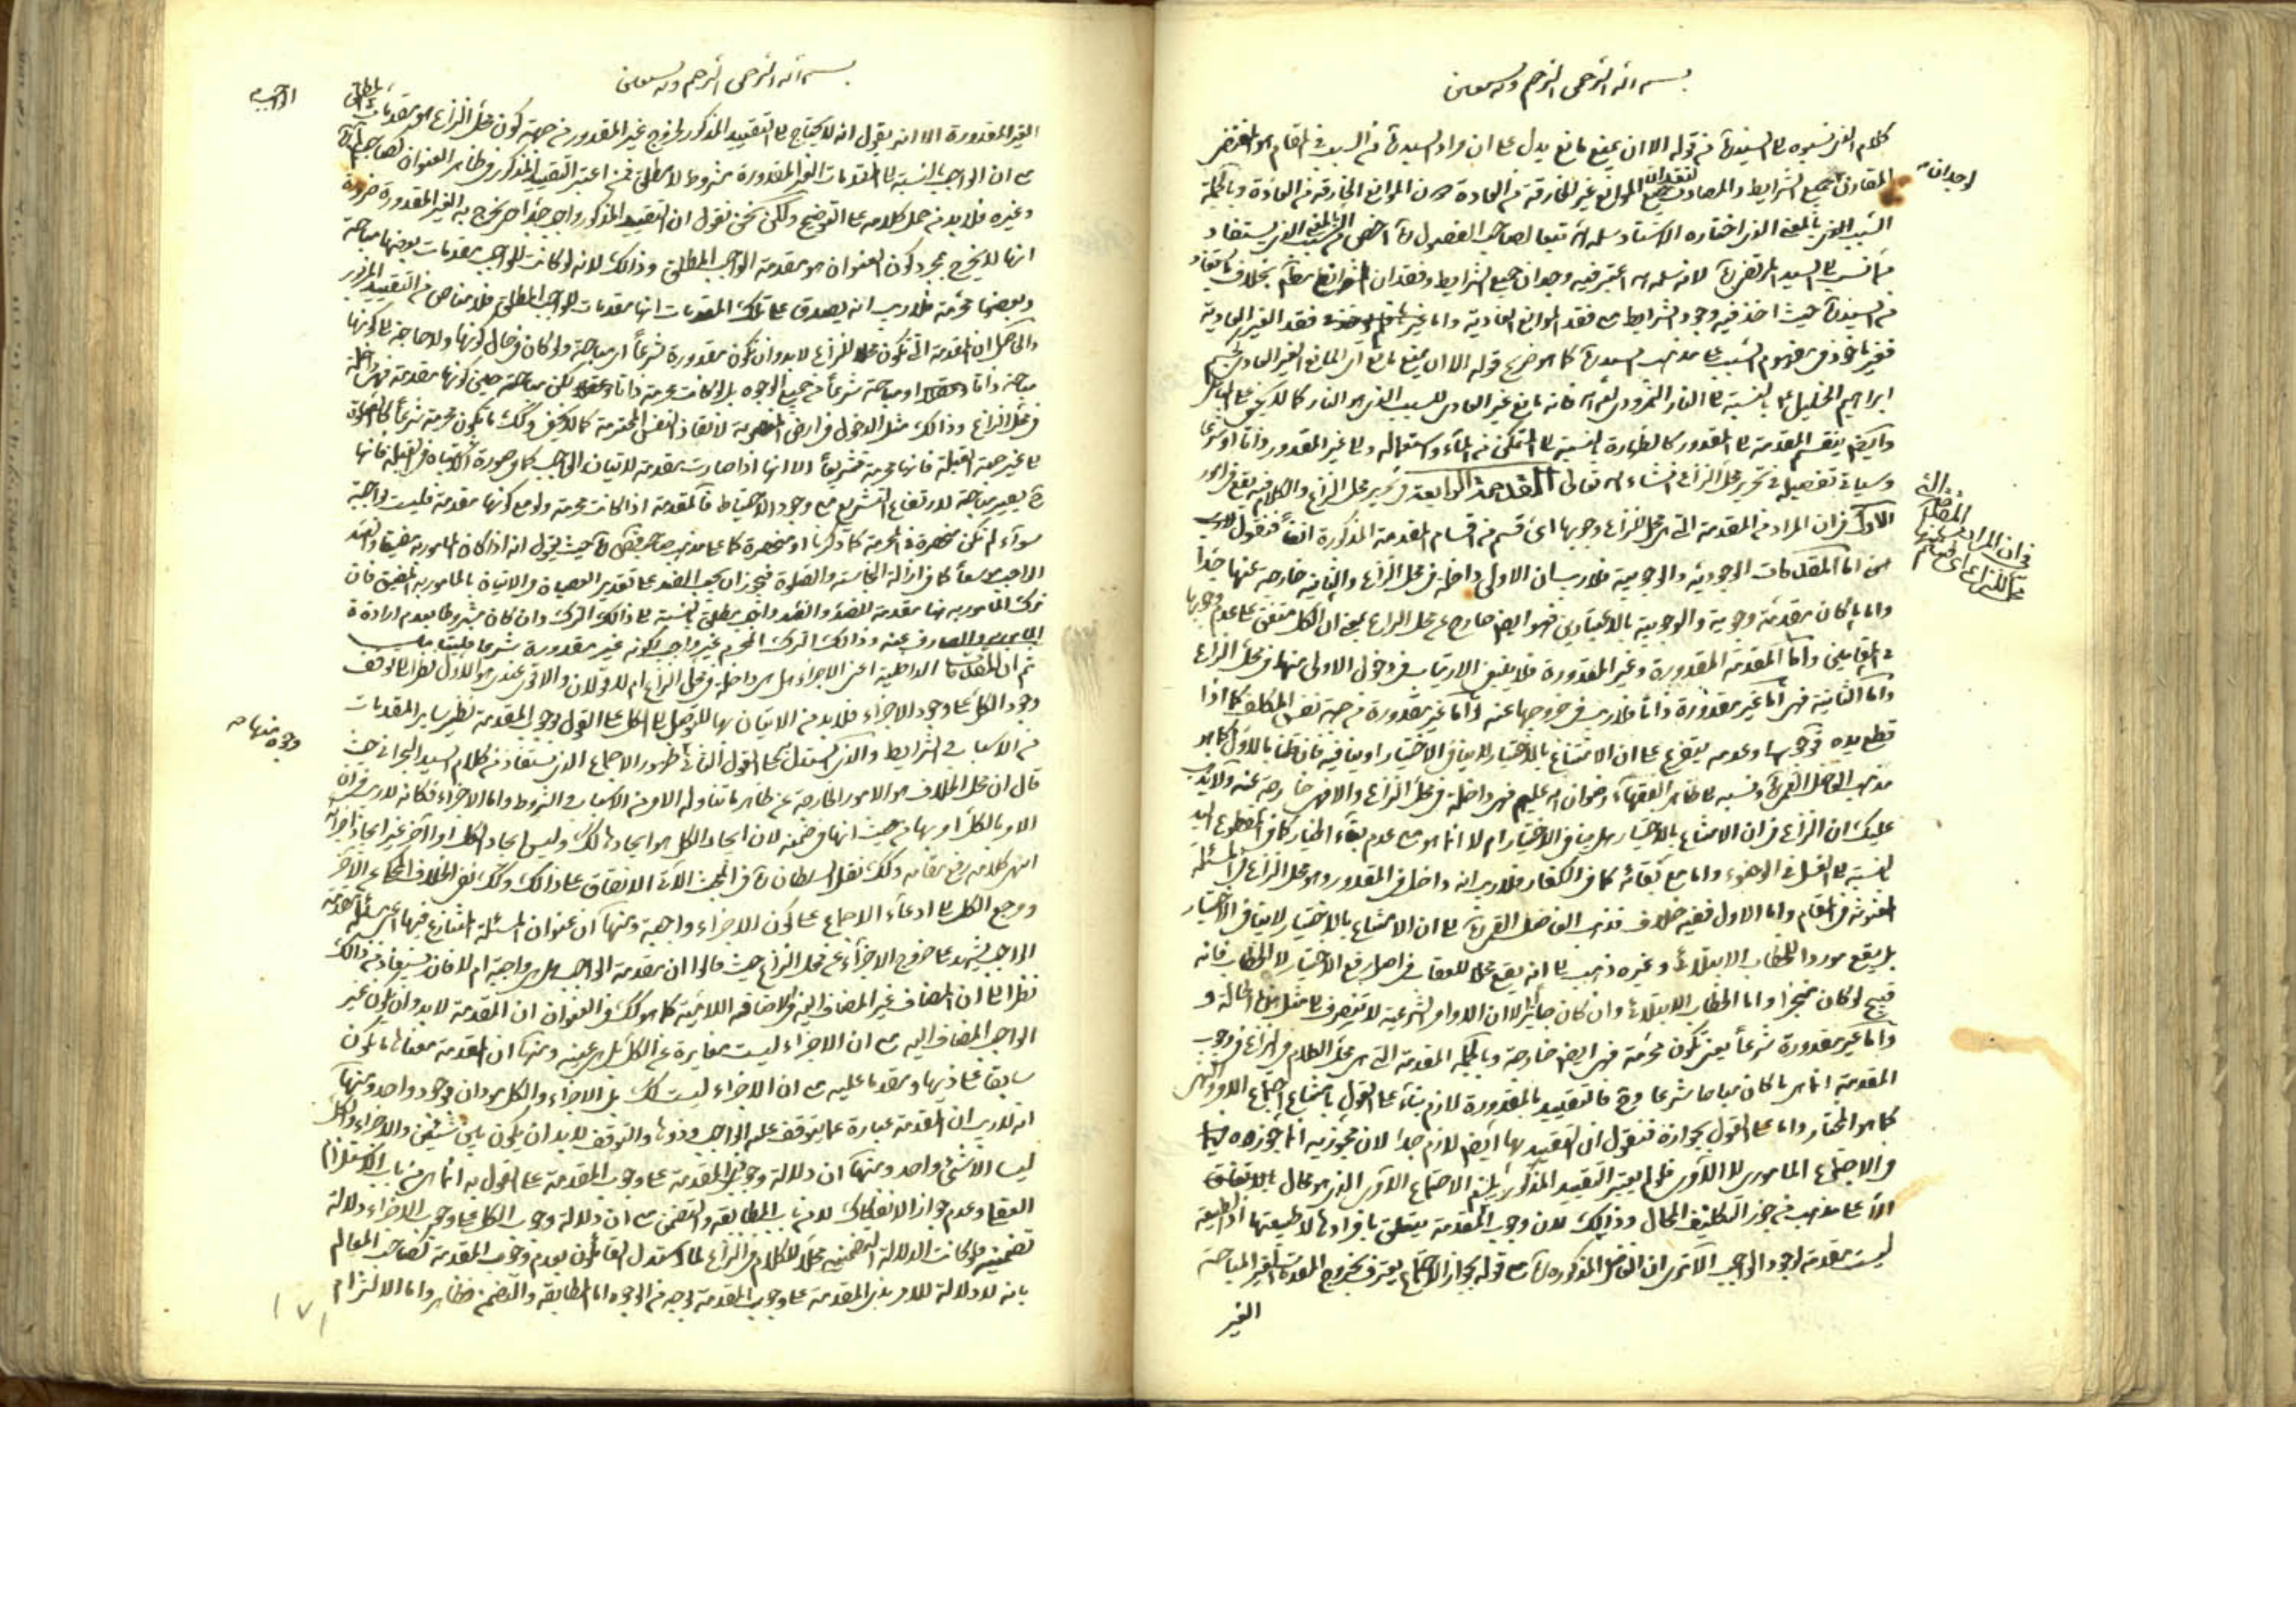 بسم الله الرحمن الرحيم وبه نستعين
كلام الى السيد ره من قوله الا ان يمنع مانع يدل على ان مراد السيد ره من السبب في المقام هو المقتضى
لوجدان
المقارن لجميع الشرايط والمصادف لفقدان جميع الموانع الغير الخارقة من العادة دون الموانع الخارقة من العادة وبالجملة
السبب بالمعنى الذى اختاره الاستاد سلمه الله تبعا لصاحب الفصول ره اخص من السبب بالمعنى الذى يستفاد
الى السيد المرتضى ره لانه سلمه الله اعتبر فيه وجدان جميع الشرايط وفقدان الموانع بخلاف ما يستفاد
من السيد ره حيث اخذ فيه وجود الشرايط مع فقد الموانع العادية واما فقد الغير العادية
فغير ماخوذ في مفهوم السبب على مذهب السيد ره كما هو صريح قوله الا ان يمنع مانع اى المانع الغير العادى كجسم
ابراهيم الخليل ع بالنسبة الى النار النمرود لعنه الله فانه مانع غير العادى للسبب الذى هو النار كما لا يخفى على
وايضا ينقسم المقدمة الى المقدور كالطهارة بالنسبة الى المتمكن من الماء واستعماله والى غير المقدور ذاتا او شرعا
وسياتى تفصيله في تحرير محل النزاع انشاء الله تعالى المقدمة الرابعة في تحرير محل النزاع والكلام فيه يقع في امور
الاول في ان المراد من المقدمة التى هى محل النزاع وجوبها اى قسم من اقسام المقدمة المذكورة انفا فنقول
في ان المراد
محل النزاع اى قسم
اما المقدمات الوجودية والوجوبية فلا ريب ان الاولى داخلة في محل النزاع والثانية خارجة عنها جدا
واما ما كان مقدمة وجودية والوجوبية بالاعتبارين فهو ايضا خارج عن محل النزاع بمعنى ان الكل متفق على عدم وجوبها
في المقامين واما المقدمة المقدورة وغير المقدورة فلا ينبغى الارتياب في دخول الاولى منها في محل النزاع
واما الثانية فهى اما غير مقدورة ذاتا فلا ريب في خروجها عنه واما غير مقدورة من جهة نفس المكلف كما اذا
قطع يده فوجوبها وعدمه يتفرع على ان الامتناع بالاختيار لا ينافى الاختيار او ينافيه فان قلنا بالاول كما هو
مذهب الفاضل القمى ره ونسبه الى ظاهر الفقهاء رضوان الله عليهم فهى داخلة في محل النزاع والا فهى خارجة عنه ولا يذهب
عليك ان النزاع في ان الامتناع بالاختيار هل ينافى الاختيار ام لا انما هو مع عدم بقاء الاختيار كما في المقطوع اليد
بالنسبة الى الغسل في الوضوء واما مع بقائه كما في الكفار فلا ريب انه داخل في المقدور وهو محل النزاع في المسئلة
المعنونة في المقام واما الاول ففيه خلاف فذهب الفاضل القمى ره الى ان الامتناع بالاختيار لا ينافى الاختيار
بل يقع موردا للخطاب الابتلائى وغيره ذهب الى انه يقع محلا للعقاب في اصل رفع الاختيار لا الخطاب فانه
قبيح لو كان منجزا واما الخطاب الابتلائى وان كان جايزا الا ان الاوامر الشرعية لا تنصرف الى مثل هذه الحالة و
واما غير مقدورة شرعا يعنى تكون محرمة فهى ايضا خارجة وبالجملة المقدمة التى هى محل الكلام والنزاع في وجوب
المقدمة انما هى ما كان مباحا شرعا وح فالتقييد بالمقدورة لازم بناء على القول بامتناع اجتماع الامر والنهى
كما هو المختار واما على القول بجوازه فنقول ان التقييد بها ايضا لازم جدا لان مجوزيه انما جوزوه
في الاجتماع المأمورى لا الآمرى فلو لم يعتبر التقييد المذكور يلزم الاجتماع الآمرى الذى هو محال بالاتفاق
الا على مذهب من جوز التكليف المحال وذلك لان وجوب المقدمة يتعلق بافرادها لا طبيعتها اذ الطبيعة
ليست مقدمة لوجود الواجب الا ترى ان الفاضل المذكور ره مع قوله بجواز الاجتماع يعترف بخروج المقدمات الغير المباحة
الغير
بسم الله الرحمن الرحيم وبه نستعين
الغير المقدورة الا انه يقول انه لا يحتاج الى التقييد المذكور لخروج غير المقدور من جهة كون محل النزاع هو مقدمات
الواجب
مع ان الواجب بالنسبة الى المقدمات الغير المقدورة مشروط لا مطلق فمن اعتبر التقييد المذكور في ظاهر العنوان كصاحب
وغيره فلا بد من حمل كلامه على التوضيح ولكن نحن نقول ان التقييد المذكور واجب جدا حتى يخرج به الغير المقدورة ضرورة
انها لا يخرج بمجرد كون العنوان هو مقدمة الواجب المطلق وذلك لانه لو كانت للواجب مقدمات بعضها مباحة
وبعضها محرمة فلا ريب انه يصدق على تلك المقدمات انها مقدمات للواجب المطلق فلا مناص من التقييد المزبور
والحاصل ان المقدمة التى تكون محلا للنزاع لا بد وان تكون مقدورة شرعا اى مباحة ولو كان في حال كونها ولا حاجة الى كونها
مباحة ذاتا او مباحة شرعا من جميع الوجوه بل لو كانت محرمة ذاتا لكن مباحة حين كونها مقدمة فهى داخلة
في محل النزاع وذلك مثل الدخول في ارض المغصوبة لانقاذ النفس المحترمة كما لا يخفى وكك ما يكون محرمة شرعا كالصلوة
الى غير جهة القبلة فانها محرمة تشريعا الا انها اذا صارت مقدمة لاتيان الواجب كما في صورة الاشتباه في القبلة فانها
ح يصير مباحة لارتفاع التشريع مع وجود الاحتياط فالمقدمة اذا كانت محرمة ولو مع كونها مقدمة فليست واجبة
سواء لم تكن منحصرة في المحرمة كما ذكرنا او منحصرة كما على مذهب حيث يقول انه اذا كان المامور به مضيقا والضد
الواجب موسعا كما في ازالة النجاسة والصلوة فيجوز ان يجب الضد على تقدير العصيان والاتيان بالمامور به المضيق فان
ترك المامور به مقدمة للضد والضد واجب مطلق بالنسبة الى ذلك الترك وان كان مشروطا بعدم ارادة
والصارف عنه وذلك الترك المحرم غير واجب لكونه غير مقدورة شرعا
ثم ان المقدمات الداخلية اعنى الاجزاء هل هى داخلة في محل النزاع ام لا قولان والاقوى عندى هو الاول نظرا الى توقف
وجود الكل على وجود الاجزاء فلا بد من الاتيان بها للتوصل الى الكل على القول بوجوب المقدمة نظير ساير المقدمات
وجوه منها
من الاسباب والشرايط والذى استدل على القول الثانى ظهور الاجماع الذى يستفاد من كلام السيد البحرانى حيث
قال ان محل الخلاف هو الامور الخارجة عن ظاهر ما تناوله الامر من الاسباب والشروط واما الاجزاء فكانه لا ريب في ان
الامر بالكل امر بها من حيث انها في ضمنه لان ايجاد الكل هو ايجادها كك وليس ايجاد الكل امرا اخر غير ايجاد اجزائه
انتهى كلامه رفع مقامه وكك نقل السلطان ره في البحث الاتى الاتفاق على ذلك وكك نفى الخلاف المحكى عن الاخر
ومرجع الكل الى ادعاء الاجماع على كون الاجزاء واجبة ومنها ان عنوان المسئلة المتنازع فيها اعنى مسئلة مقدمة
الواجب يشهد على خروج الاجزاء عن محل النزاع حيث قالوا ان مقدمة الواجب هل هى واجبة ام لا فان يستفاد من ذلك
نظرا الى ان المضاف غير المضاف اليه في الاضافة اللامية كما هو كك في العنوان ان المقدمة لا بد وان يكون غير
الواجب المضاف اليه مع ان الاجزاء ليست مغايرة عن الكل بل هى عينه ومنها ان المقدمة معناها ما يكون
سابقا على ذيها ومقدما عليه مع ان الاجزاء ليست كك بل الاجزاء والكل موجودان بوجود واحد ومنها
انه لا ريب ان المقدمة عبارة عما يتوقف عليه الواجب والتوقف لا بد ان يكون بين شيئين والاجزاء والكل
ليسا الا شئ واحد ومنها ان دلالة وجوب ذى المقدمة على وجوب المقدمة على القول به انما هى من باب الاستلزام
العقلى وعدم جواز الانفكاك لا من باب المطابقة والتضمن مع ان دلالة وجوب الكل على وجوب الاجزاء دلالة
تضمنية فلو كانت الدلالة التضمنية محلا للكلام والنزاع لما استدل القائلون بعدم وجوب المقدمة كصاحب المعالم
بانه لا دلالة للامر بذى المقدمة على وجوب المقدمة بوجه من الوجوه اما المطابقة والتضمن فظاهر واما الالتزام